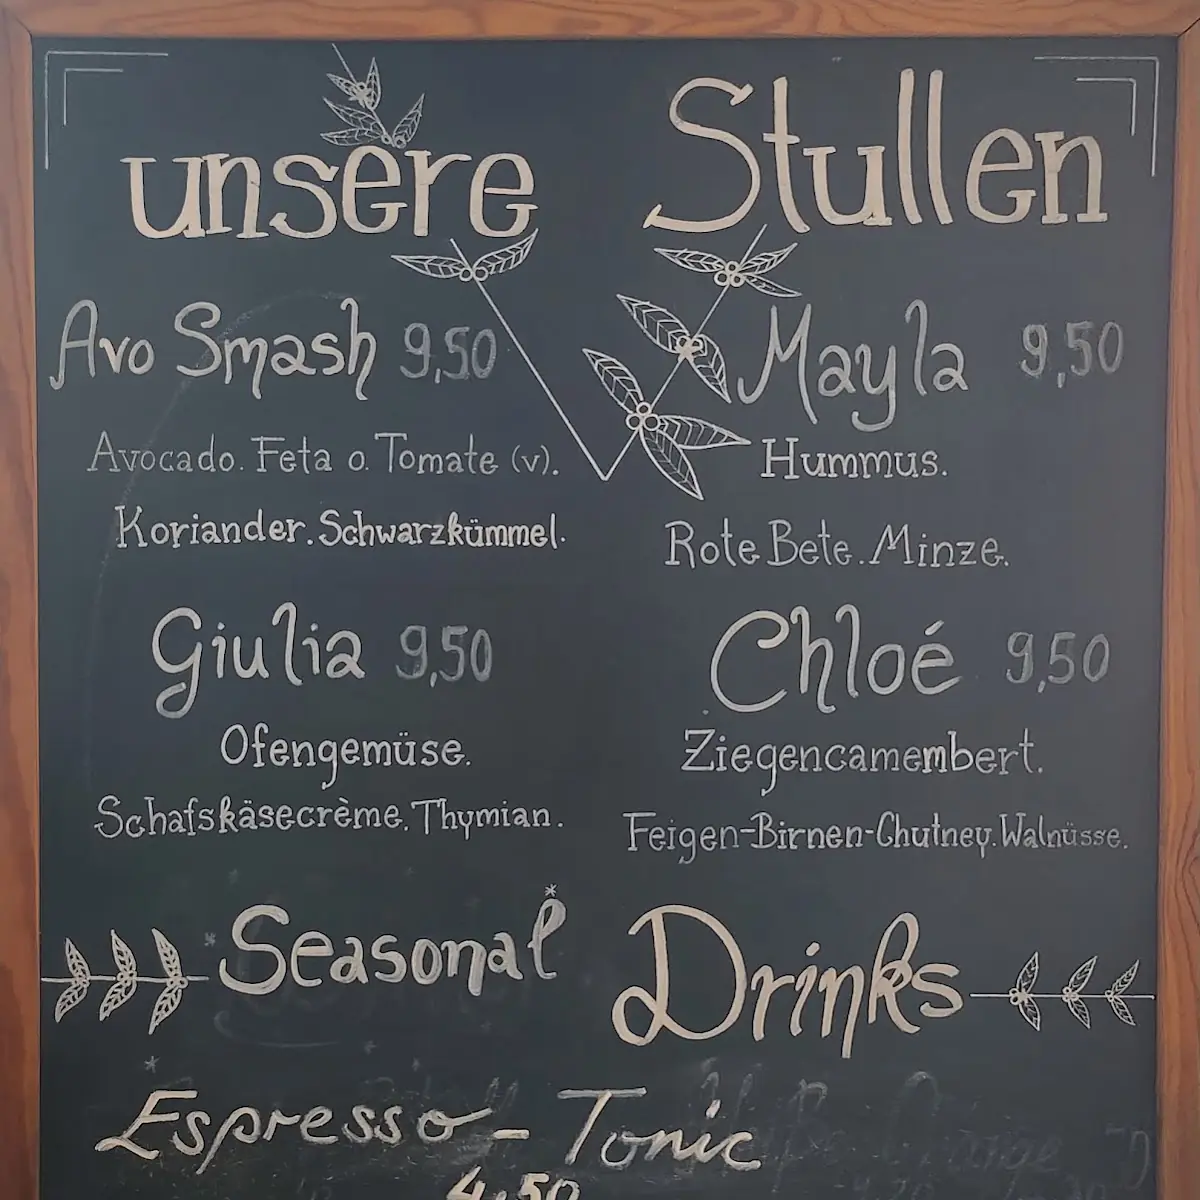 unsere Stullen
Avo Smash 9,50
Avocado. Feta o. Tomate (v).
Koriander. Schwarzkümmel.
Mayla 9,50
Hummus.
Rote Bete. Minze.
Giulia 9,50
Ofengemüse.
Schafskäsecrème. Thymian.
Chloé 9,50
Ziegencamembert.
Feigen-Birnen-Chutney. Walnüsse.
Seasonal Drinks
Espresso-Tonic
4,50